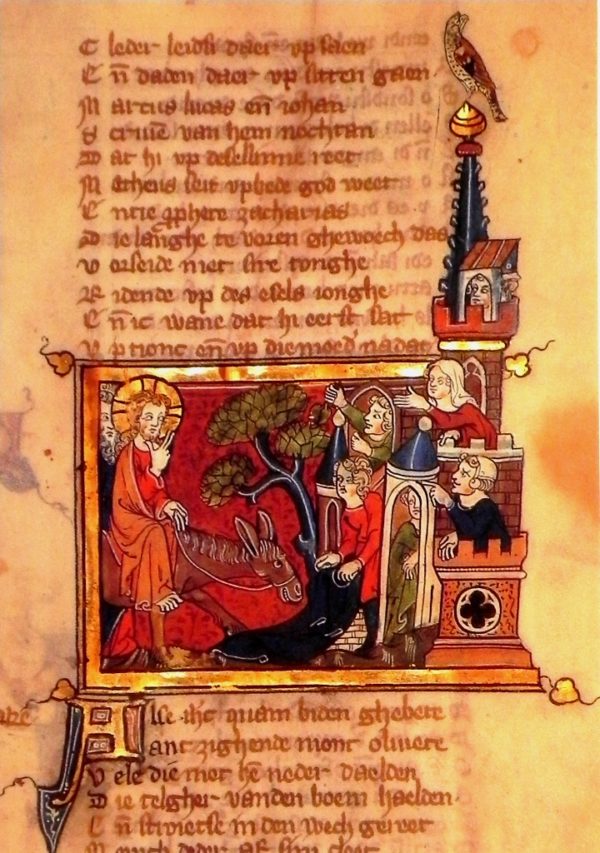 C leder leidsi daer vp saen
E ñ daden daer vp sitten gaen.
M arcus lucas eñ iohan
S criuẽ van hem nochtan
D at hi vp desellinne reet
M atheus seit vpbede god weet
E ntie ꝓphete zacharias
D ie langhe te voren ghewoech das
V orseide met sire tonghe
R idende vp des esels ionghe
E ñ ic wane dat hi eerst sat
V p tionc eñ vp die moed' nadat
A lse ih̄c quam biden ghebete
ant zighende mont oliuete
V ele die met hẽ neder daelden
D ie telgher vanden boem haelden.
E ñ in den wech